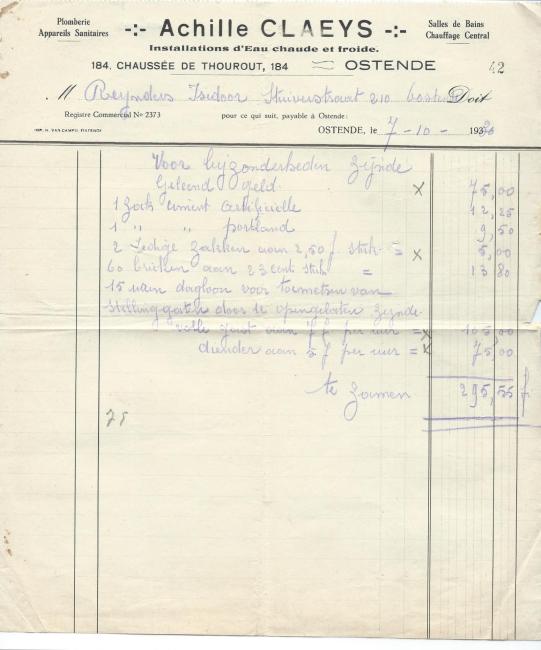 Plomberie
Appareils Sanitaires
-:- Achille CLAEYS -:-
Salles de Bains
Chauffage Central
Installations d'Eau chaude et froide.
184, CHAUSSÉE DE THOUROUT, 184 OSTENDE
42
M Reynders Isidoor Stuiverstraat 210 Oostende Doit
Registre Commercial No 2373 pour ce qui suit, payable à Ostende:
IMP. H. VAN CAMPO, OSTENDE
OSTENDE, le 7-10- 193
Voor bijzonderheden zijnde
Geleend geld x 75,00
1 Zak ciment artificielle 12,25
1 " " portland 9,50
2 Ledige zakken aan 2,50 f. stuk = x 5,00
60 bricken aan 23 cent stuk = 13 80
15 uren dagloon voor toemetsen van
stellinggaten door te opengelaten zijnde
volle gast aan 7 f per uur = x 105,00
diender aan 5 f per uur = x 75,00
te zamen 295,55 fr
75